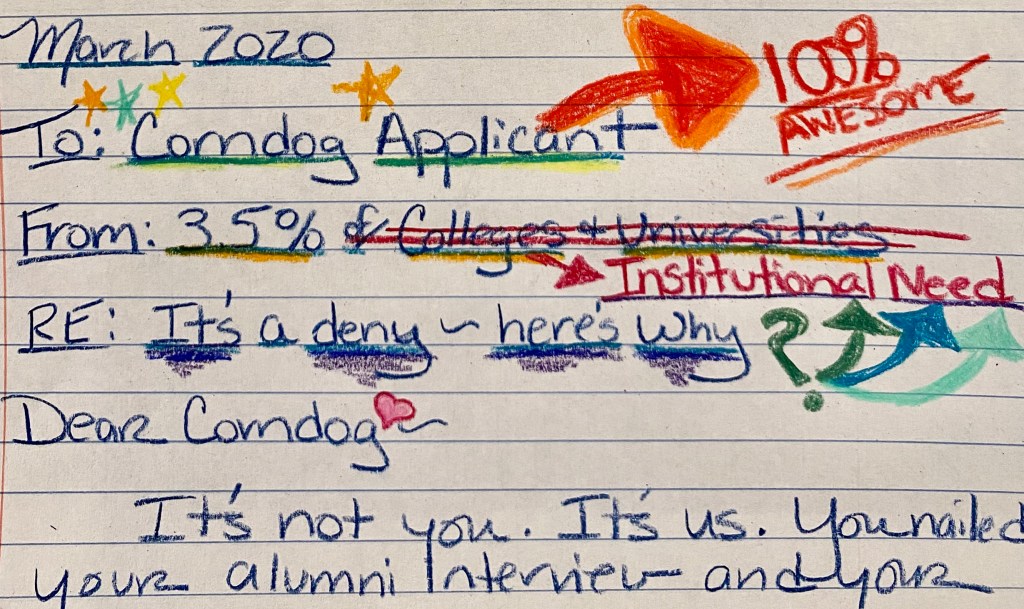 March 2020
100%
AWESOME
To: Corndog Applicant
From: 3.5% of Colleges + Universities
Institutional Need
RE: It's a deny ~ here's why ?
Dear Corndog ~
It's not you. It's us. You nailed
your alumni interview and your